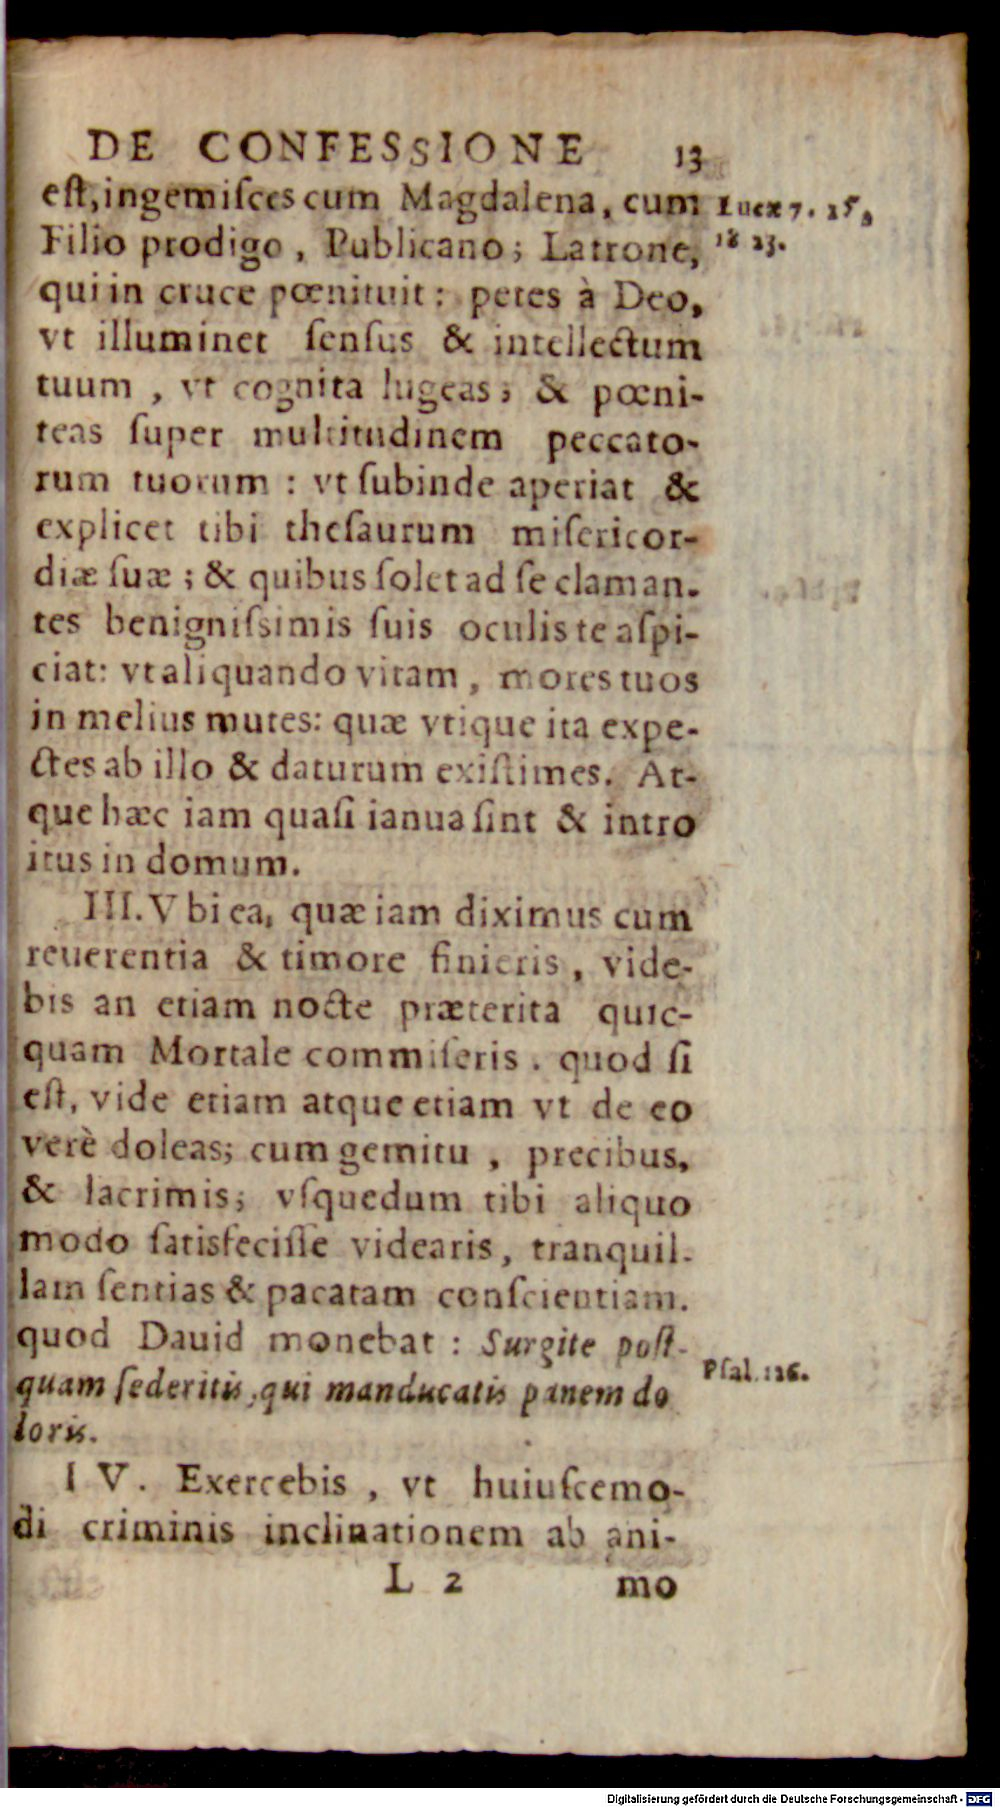 DE CONFESSIONE 13
eſt, ingemiſces cum Magdalena, cum Lucæ 7. 15,
Filio prodigo, Publicano; Latrone, 18 23.
qui in cruce pœnituit: petes à Deo,
vt illuminet ſenſus & intellectum
tuum, vt cognita lugeas; & pœni-
teas ſuper multitudinem peccato-
rum tuorum: vt ſubinde aperiat &
explicet tibi theſaurum miſericor-
diæ ſuæ; & quibus ſolet ad ſe claman-
tes benigniſsimis ſuis oculis te aſpi-
ciat: vt aliquando vitam, mores tuos
in melius mutes: quæ vtique ita expe-
ctes ab illo & daturum exiſtimes. At-
que hæc iam quaſi ianua ſint & intro
itus in domum.
III. Vbi ea, quæ iam diximus cum
reuerentia & timore finieris, vide-
bis an etiam nocte præterita quic-
quam Mortale commiſeris. quod ſi
eſt, vide etiam atque etiam vt de eo
verè doleas; cum gemitu, precibus,
& lacrimis; vſquedum tibi aliquo
modo ſatisfeciſſe videaris, tranquil-
lam ſentias & pacatam conſcientiam.
quod Dauid monebat: Surgite poſt-
quam ſederitis, qui manducatis panem do Pſal. 126.
loris.
IV. Exercebis, vt huiuſcemo-
di criminis inclinationem ab ani-
L 2 mo
Digitalisierung gefördert durch die Deutsche Forschungsgemeinschaft - DFG